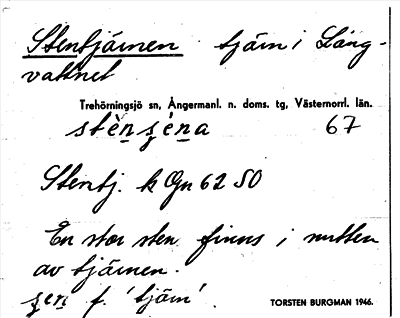 Stentjärnen tjärn i Lång-
vattnet
Trehörningsjö sn, Ångermanl. n. doms. tg, Västernorrl. län.
stèn̲ʂén̲a 67
Stentj. k Gn 62 SO
En stor sten finns i mitten
av tjärnen.
ʂen̲ f. 'tjärn'
TORSTEN BURGMAN 1946.